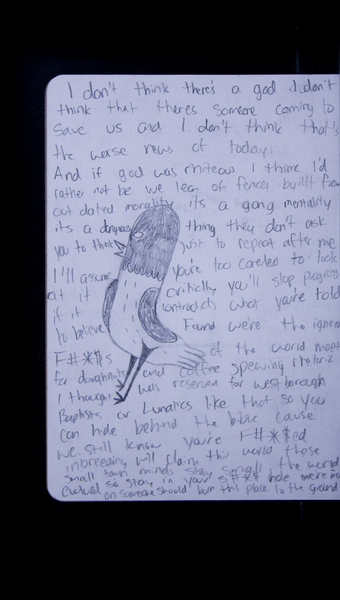 I don't think there's a god I don't
think that theres someone coming to
save us and I don't think that's
the worse news of today.
And if god was rhiteous I think I'd
rather not be we lean of fences built from
out dated morality its a gang mentality
its a dangerous thing they don't ask
you to think just to repeat after me
I'll assume you're too careled to look
at it critically you'll stop progress
if it contradicts what you're told
to believe Found we're the ignorn
F#*$s of the world meet
for doughnuts and coffee spewing rhetoric
I thought was reserved for westborough
Baptists or Lunatics like that so you
can hide behind the bible cause
we still know you're F#*$ed
inbreeding will claim this world these
small town minds stay small the world
so stay in your s#*$ hole were
on someone should burn this place to the ground